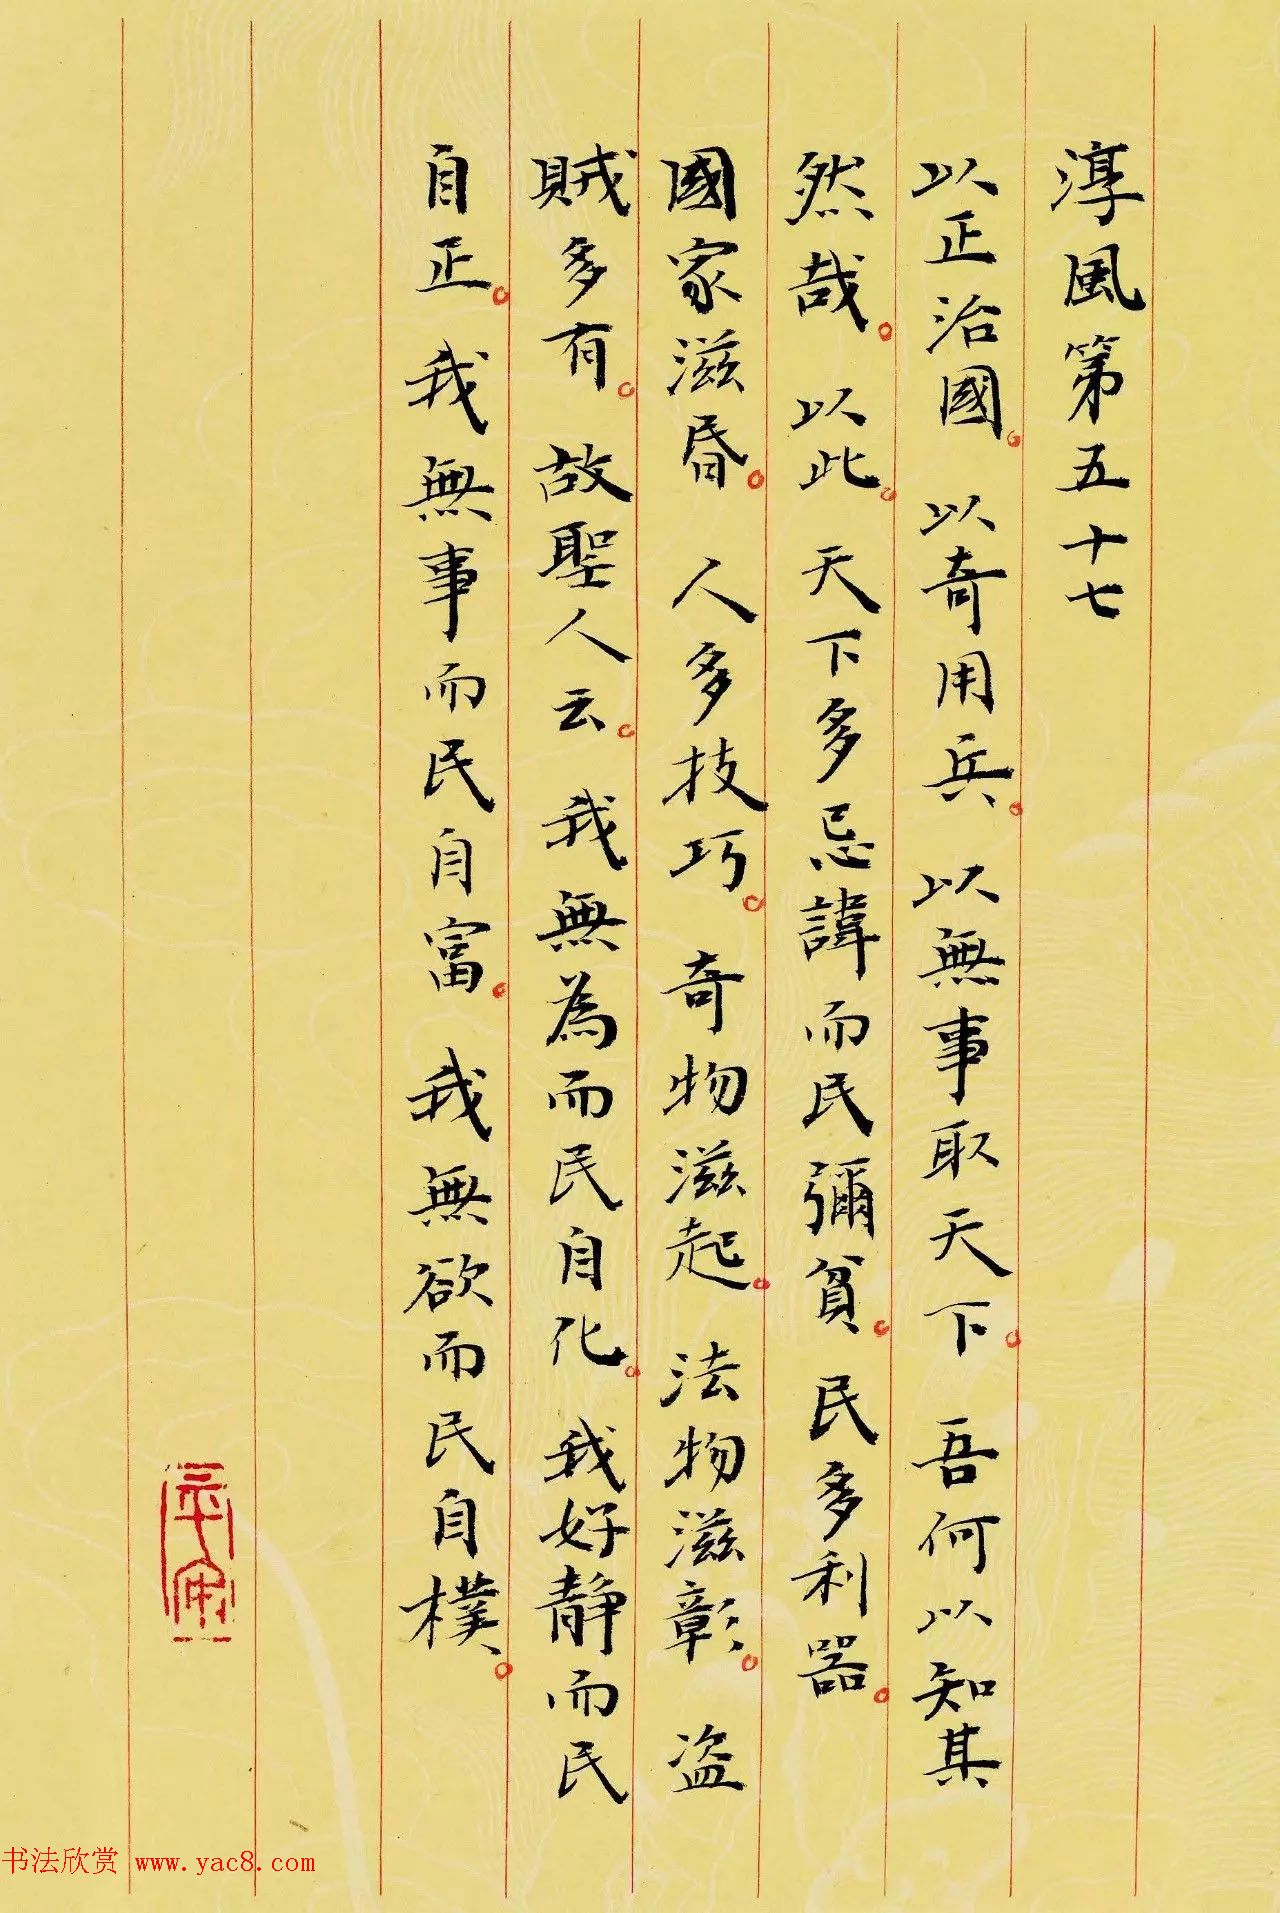 淳風第五十七
以正治國。以奇用兵。以無事取天下。吾何以知其
然哉。以此。天下多忌諱而民彌貧。民多利器。
國家滋昏。人多技巧。奇物滋起。法物滋彰。盗
賊多有。故聖人云。我無為而民自化。我好静而民
自正。我無事而民自富。我無欲而民自樸。
书法欣赏 www.yac8.com